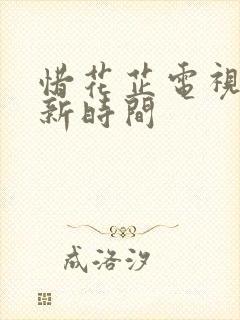 惜花芷電視
新時間
成洛汐